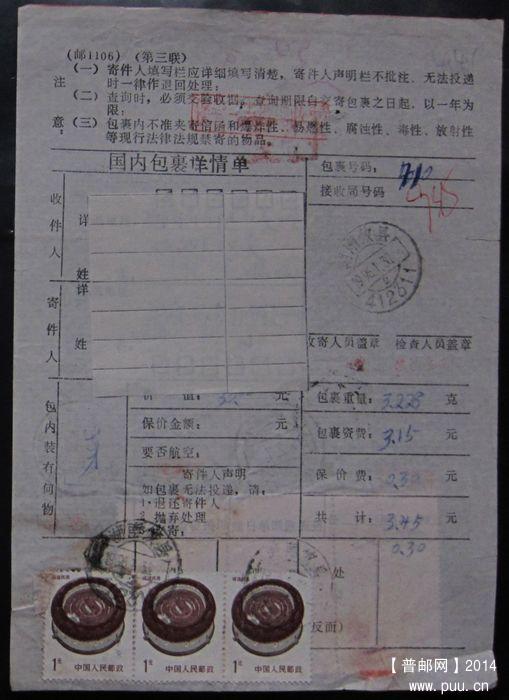 (邮1106) (第三联)
注意：
(一) 寄件人填写栏应详细填写清楚，寄件人声明栏不批注、无法投递时一律作退回处理；
(二) 查询时，必须交验收据，查询期限自交寄包裹之日起，以一年为限；
(三) 包裹内不准夹寄信函和爆炸性、易燃性、腐蚀性、毒性、放射性等现行法律法规禁寄的物品。
国内包裹详情单
包裹号码：
710
接收局号码
745
收件人
详
姓
寄件人
详
姓
412611
收寄人员盖章 检查人员盖章
包内装有何物
价 值： 元
包裹重量： 3.228 克
保价金额： 元
包裹资费： 3.15 元
要否航空：
保 价 费： 0.30 元
寄件人声明
如包裹无法投递，请：
1·退还寄件人
2 抛弃处理
共 计： 3.45 元
0.30
处
反面)
1元 中国人民邮政
1元 中国人民邮政
1元 中国人民邮政
【普邮网】2014
www.puu.cn